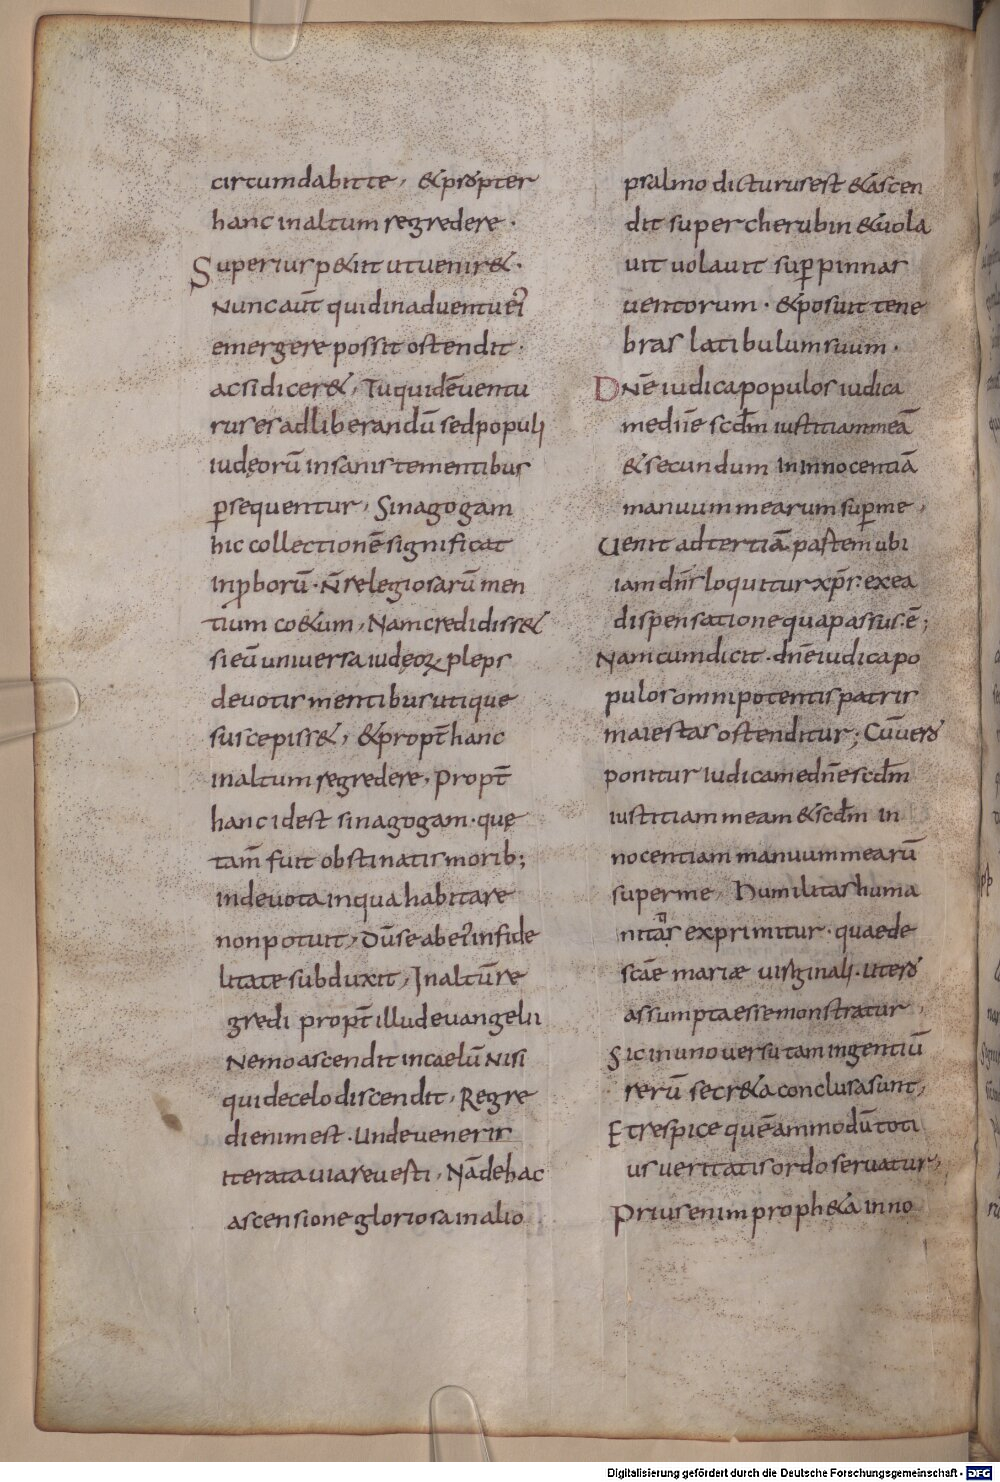 circumdabit te, & propter
hanc in altum regredere.
Superius p&iit ut uenir&.
Nunc aut̄ quid in aduentu ei'
emergere possit ostendit.
ac si dicer&, Tu quidē uentu
rus es ad liberandū sed populi
iudęorū insanis te mentibus
ꝑsequentur, Sinagogam
hic collectionē significat
inꝓborū. N̄ relegiosarū men
tium co&um, Nam credidiss&
si eū uniuersa iudęoꝝ pleps
deuotis mentibus utique
suscepiss&, & propt̄ hanc
in altum regredere, propt̄
hanc id est sinagogam. quę
tam̄ fuit obstinatis morib;
indeuota in qua habitare
non potuit, Dūse ab ei' infide
litate subduxit, In altū re
gredi propt̄ illud euangelii
Nemo ascendit in caelū nisi
qui de celo discendit, Regre
di enim est. unde ueneris
iterata uia reuesti, Nā de hac
ascensione gloriosa in alio
psalmo dicturus est & ascen
dit super cherubin & uola
uit uolauit suꝑ pinnas
uentorum. & posuit tene
bras latibulum suum.
Dn̄e iudica populos iudica
me dn̄e scd̄m iustitiam meā
& secundum in innocentiā
manuum mearum suꝑ me,
Uenit ad tertiā partem ubi
iam dn̄s loquitur xp̄s. ex ea
dispensatione qua passus ē;
Nam cum dicit. dn̄e iudica po
pulos omnipotentis patris
maiestas ostenditur; Cū uero
ponitur iudica me dn̄e scd̄m
iustitiam meam & scd̄m in
nocentiam manuum mearū
super me, Humilitas huma
nitatis exprimitur. quae de
scāe mariæ uirginali. utero
assumpta esse monstratur,
Sic in uno uersu tam ingentiū
rerū secr&a conclusa sunt,
Et respice quēammodū toti
us ueritatis ordo seruatur,
Prius enim proph&a in no
Digitalisierung gefördert durch die Deutsche Forschungsgemeinschaft - DFG